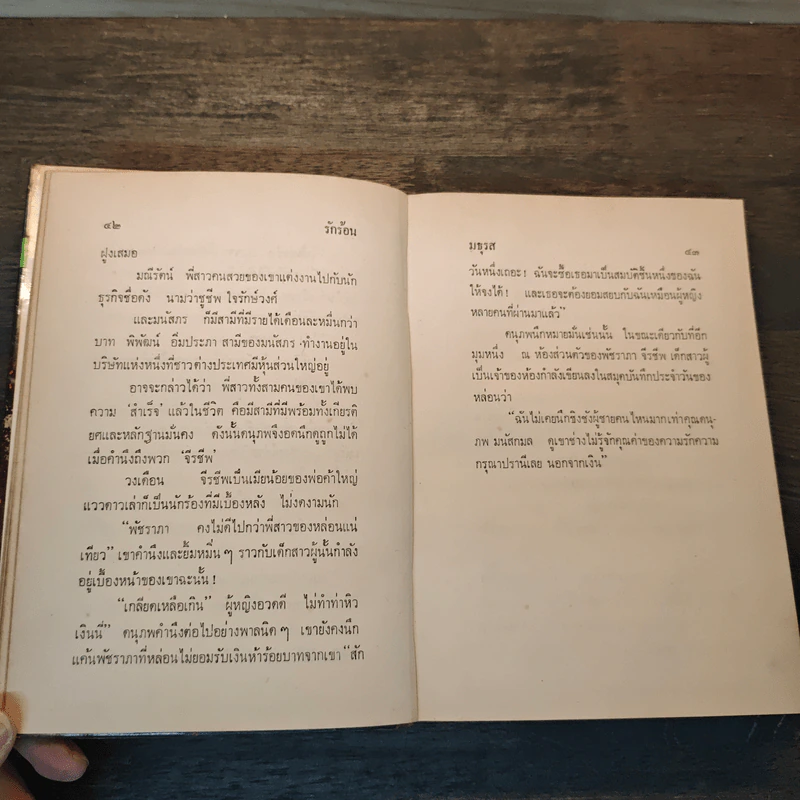 ๔๒ รักร้อน
ฝูงเสมอ
มณีรัตน์ พี่สาวคนสวยของเขาแต่งงานไปกับนัก
ธุรกิจชื่อดัง นามว่าชูชีพ ใจรักษ์วงศ์
และมนัสภร ก็มีสามีที่มีรายได้เดือนละหมื่นกว่า
บาท พิพัฒน์ อิ่มประภา สามีของมนัสภร ทำงานอยู่ใน
บริษัทแห่งหนึ่งที่ชาวต่างประเทศมีหุ้นส่วนใหญ่อยู่
อาจจะกล่าวได้ว่า พี่สาวทั้งสามคนของเขาได้พบ
ความ ‘สำเร็จ’ แล้วในชีวิต คือมีสามีที่มีพร้อมทั้งเกียรติ
ยศและหลักฐานมั่นคง ดังนั้นดนุภพจึงอดนึกดูถูกไม่ได้
เมื่อคำนึงถึงพวก ‘จีรชีพ’
วงเดือน จีรชีพเป็นเมียน้อยของพ่อค้าใหญ่
แวววดาวเล่าก็เป็นนักร้องที่มีเบื้องหลัง ไม่งดงามนัก
“พัชราภา คงไม่ดีไปกว่าพี่สาวของหล่อนแน่
เทียว” เขาคำนึงและยิ้มหมิ่น ๆ ราวกับเด็กสาวผู้นั้นกำลัง
อยู่เบื้องหน้าของเขาฉะนั้น !
“เกลียดเหลือเกิน” ผู้หญิงอวดดี ไม่ทำท่าหิว
เงินนี่” ดนุภพคำนึงต่อไปอย่างพาลนิด ๆ เขายังคงนึก
แค้นพัชราภาที่หล่อนไม่ยอมรับเงินห้าร้อยบาทจากเขา “สัก
มธุรส ๔๓
วันหนึ่งเถอะ! ฉันจะซื้อเธอมาเป็นสมบัติชิ้นหนึ่งของฉัน
ให้จงได้! และเธอจะต้องยอมสยบกับฉันเหมือนผู้หญิง
หลายคนที่ผ่านมาแล้ว”
ดนุภพนึกหมายมั่นเช่นนั้น ในขณะเดียวกับที่อีก
มุมหนึ่ง ณ ห้องส่วนตัวของพัชราภา จีรชีพ เด็กสาวผู้
เป็นเจ้าของห้องกำลังเขียนลงในสมุดบันทึกประจำวันของ
หล่อนว่า
“ฉันไม่เคยนึกชิงชังผู้ชายคนไหนมากเท่าคุณดนุ-
ภพ มนัสกมล ดูเขาช่างไม่รู้จักคุณค่าของความรักความ
กรุณาปรานีเลย นอกจากเงิน”